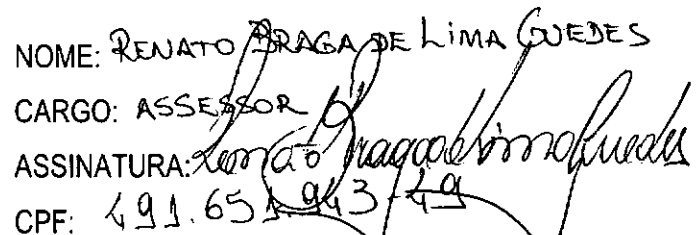 NOME: RENATO BRAGA DE LIMA GUEDES
CARGO: ASSESSOR
ASSINATURA: Renato Braga de Lima Guedes
CPF: 491.651.943-49